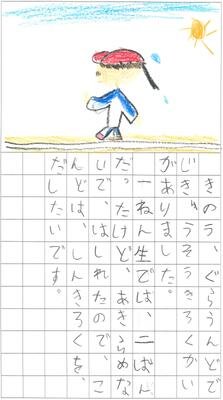 きのう、ぐらうんどで
じきゅうそうきろくかい
がありました。
一ねん生では、二ばん
だったけど、あきらめな
いで、はしれたので、こ
んどは、しんきろくを、
だしたいです。